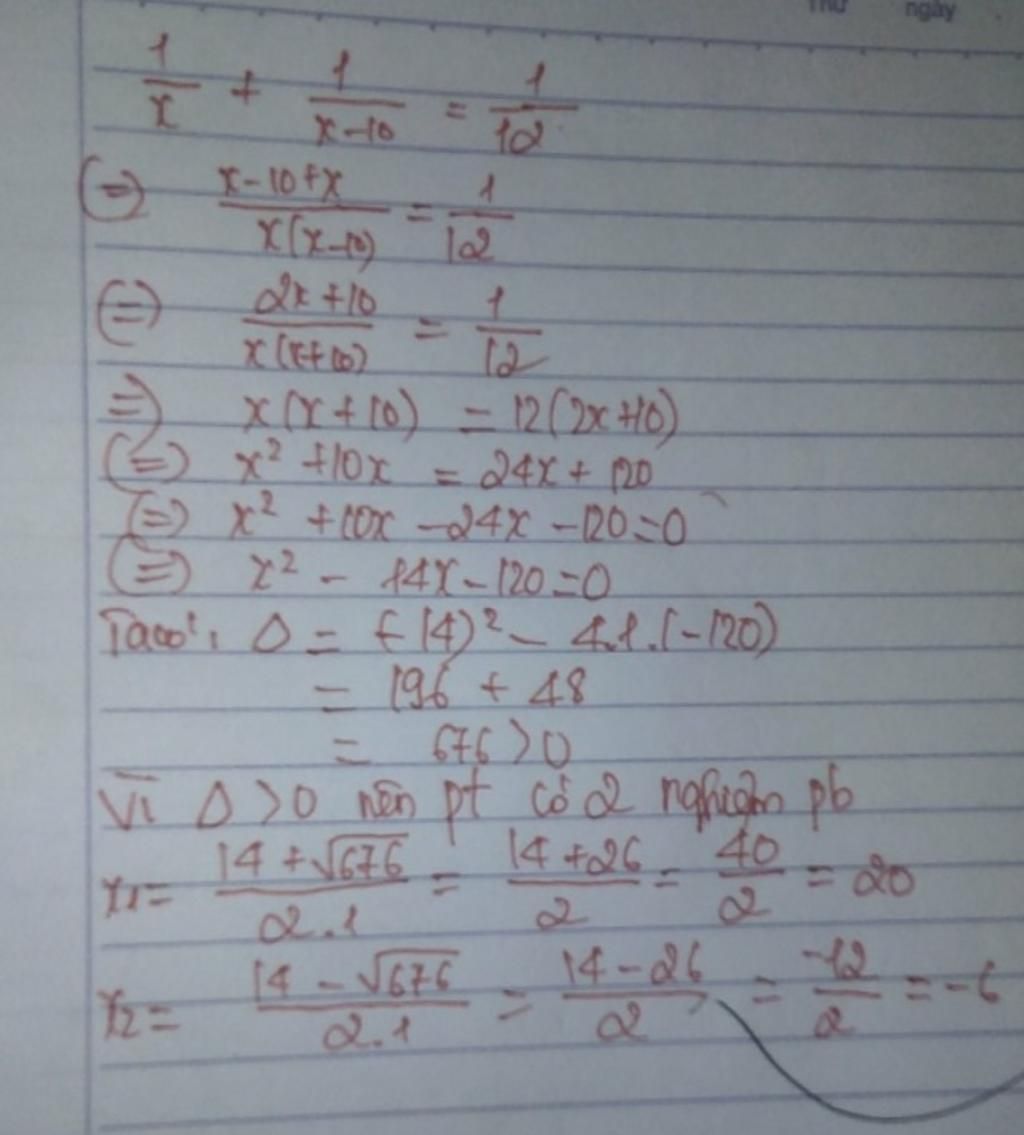 Thứ ngày
1/x + 1/(x-10) = 1/12
(=) (x-10+x)/(x(x-10)) = 1/12
(=) (2x+10)/(x(x+10)) = 1/12
=) x(x+10) = 12(2x+10)
(=) x² + 10x = 24x + 120
(=) x² + 10x - 24x - 120 = 0
(=) x² - 14x - 120 = 0
Ta có: Δ = (-14)² - 4.1.(-120)
= 196 + 48
= 676 > 0
Vì Δ > 0 nên pt có 2 nghiệm pb
x1 = (14+√676)/(2.1) = (14+26)/2 = 40/2 = 20
x2 = (14-√676)/(2.1) = (14-26)/2 = -12/2 = -6